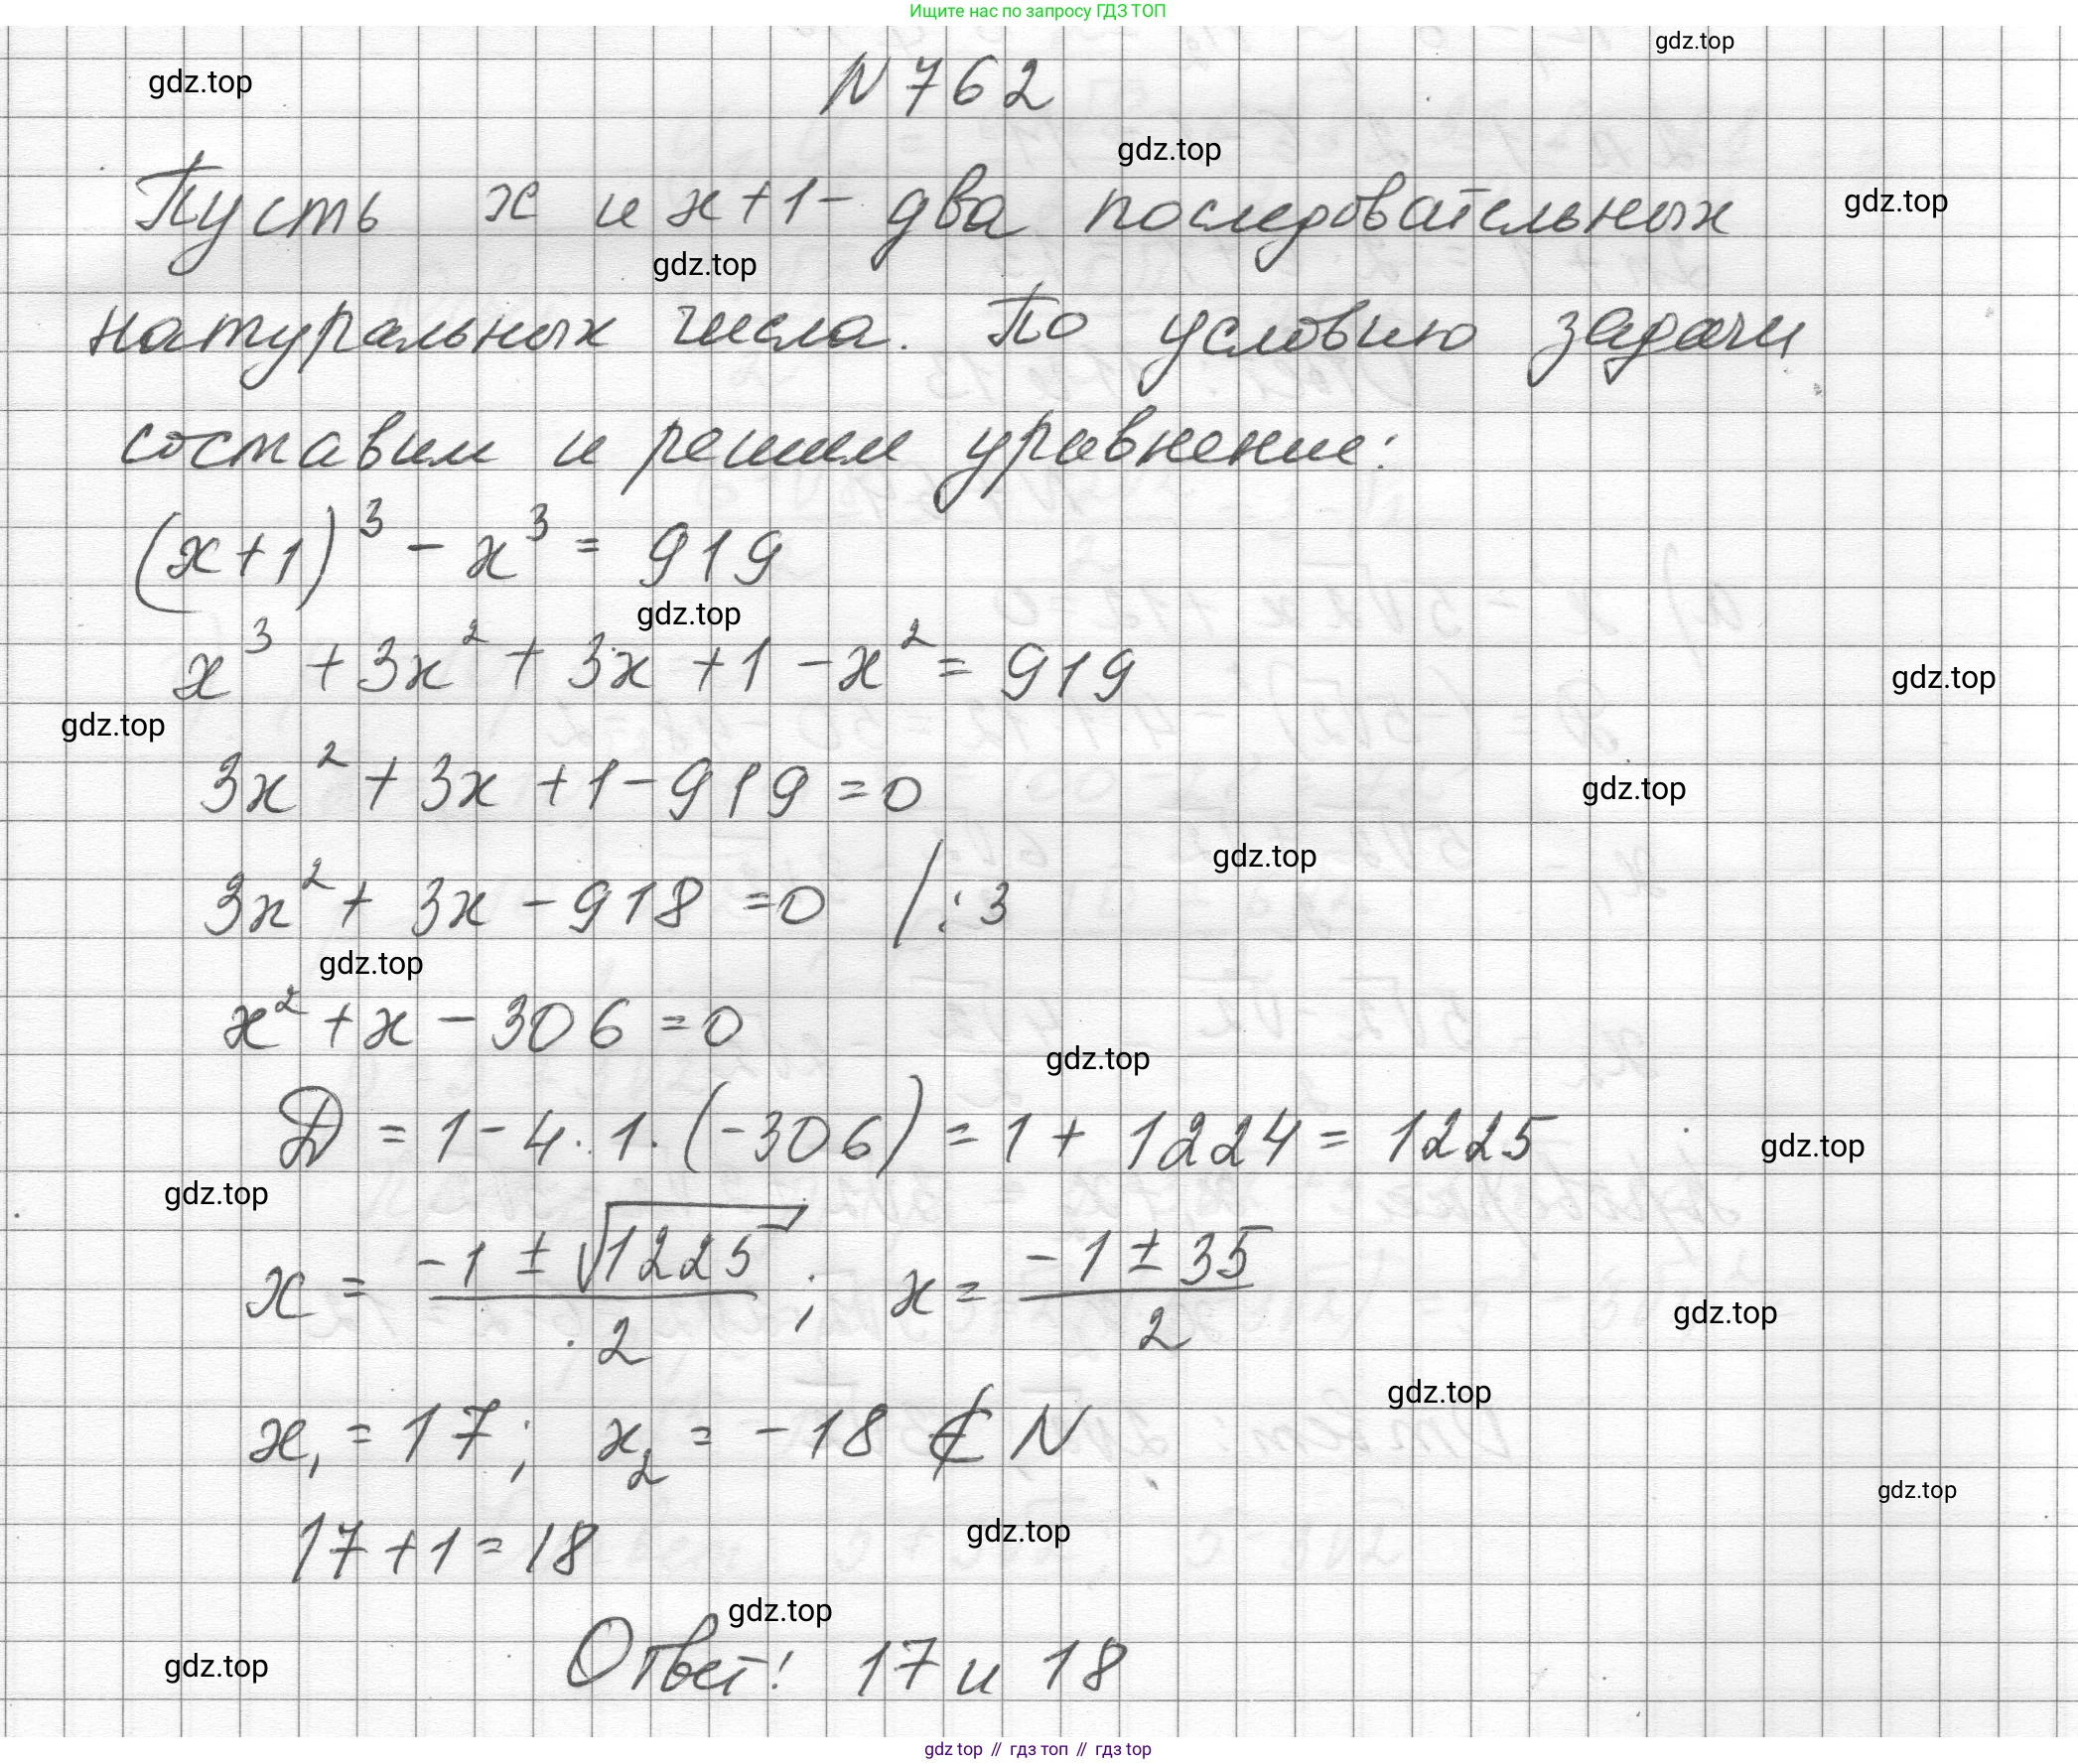 Ищите нас по запросу ГДЗ ТОП
gdz.top
gdz.top
N 762
gdz.top
Пусть x и x+1 - два последовательных
gdz.top
gdz.top
натуральных числа. По условию задачи
составим и решим уравнение:
(x+1)³ - x³ = 919
gdz.top
x³ + 3x² + 3x + 1 - x² = 919
gdz.top
gdz.top
3x² + 3x + 1 - 919 = 0
gdz.top
gdz.top
3x² + 3x - 918 = 0 / :3
gdz.top
x² + x - 306 = 0
gdz.top
D = 1 - 4 · 1 · (-306) = 1 + 1224 = 1225
gdz.top
gdz.top
x = (-1 ± √1225) / 2 ; x = (-1 ± 35) / 2
gdz.top
gdz.top
x₁ = 17; x₂ = -18 ∉ N
gdz.top
gdz.top
17 + 1 = 18
gdz.top
gdz.top
Ответ: 17 и 18
gdz top // гдз топ // гдз top